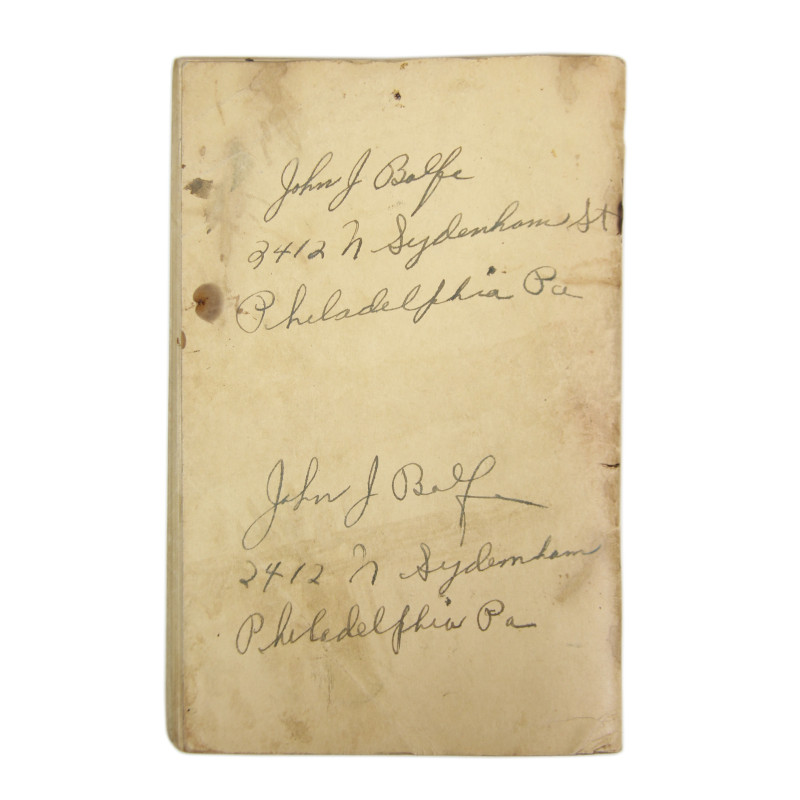 John J Balfe
2412 N Sydenham St
Philadelphia Pa
John J Balfe
2412 N Sydenham
Philadelphia Pa